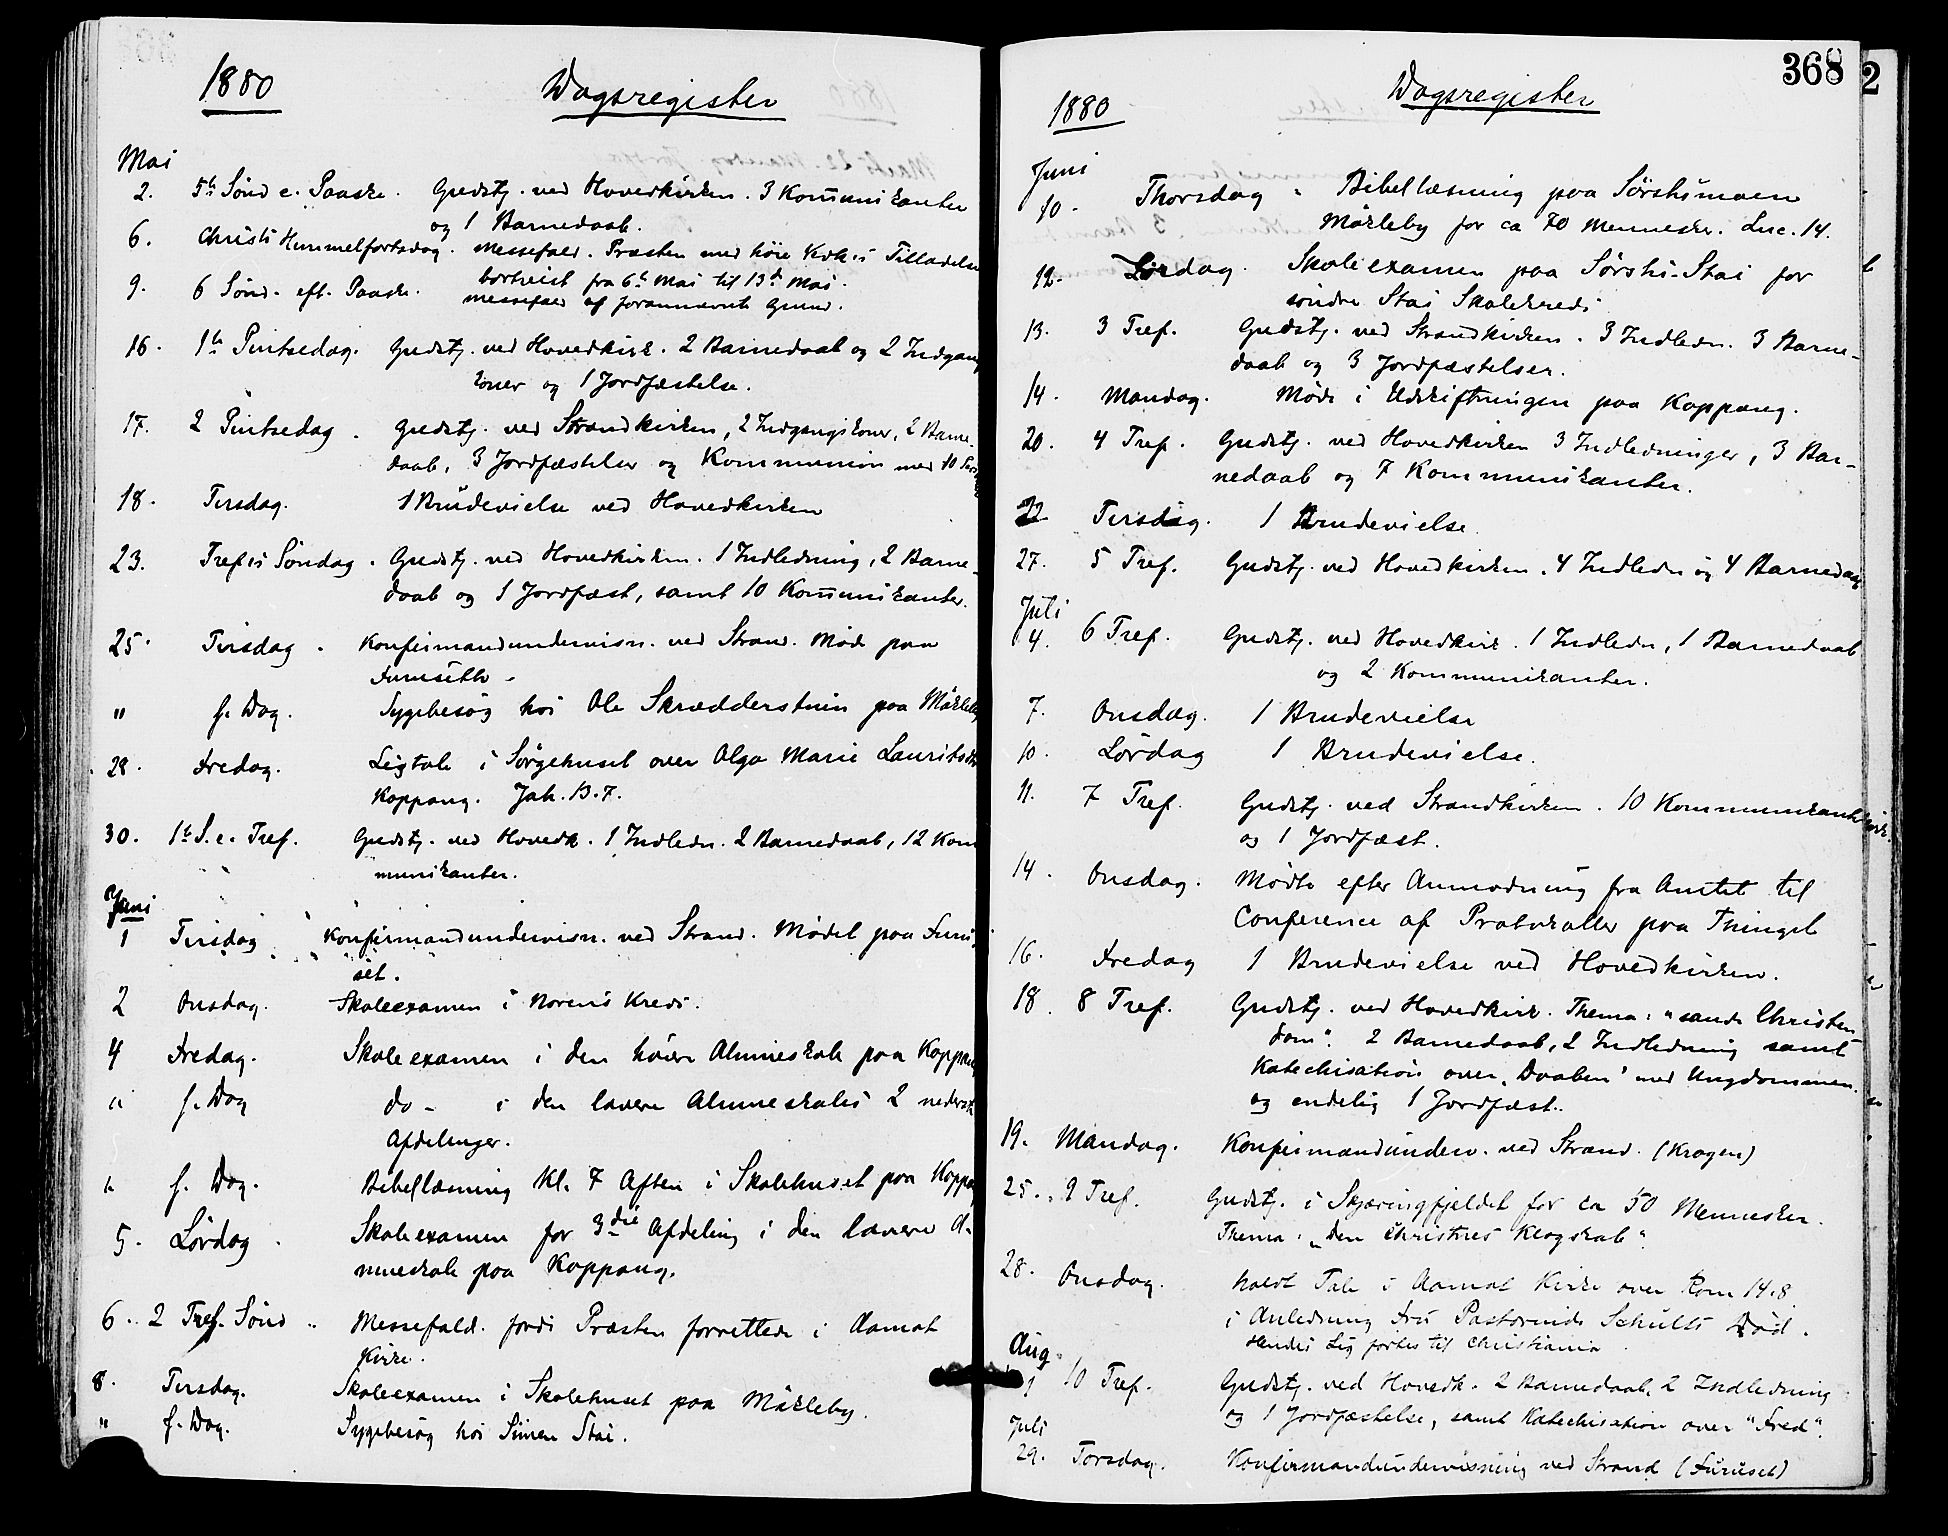 1880 Dagsregister
Mai
2. 5te Sønd e. Paaske. Gudstj. ved Hovedkirken. 3 Kom̄unikanter
og 1 Barnedaab.
6. Christi Himmelfortsdag. Messefald. Præsten med høie Kdt.s Tilladelse
bortreist fra 6te Mai til 13de Mai.
9. 6 Sønd. eft. Paaske. Messefald af forannævnte Grund.
16. 1te Pintsedag. Gudstj. ved Hovedkirk. 2 Barnedaab og 2 Indgangs
koner og 1 Jordfæstelse.
17. 2 Pintsedag. Gudstj. ved Strandkirken, 2 Indgangskoner, 2 Barne-
daab, 3 Jordfæstelser og Kommunion med 10
18. Tirsdag. 1 Brudevielse ved Hovedkirken
23. Tref.s Søndag. Gudstj. ved Hovedkirken. 1 Indledning, 2 Barne-
daab og 1 Jordfæst, samt 10 Kom̄unikanter.
25. Tirsdag. Konfirmandundervisn. ved Strand. Møde paa
Furuseth.
" s. Dag. Sygebesøg hos Ole Skrædderstuen paa Mökleby
28. Fredag. Ligtale i Sørgehuset over Olga Marie Lauritsdtr
Koppang. Joh. 13.7.
30. 1te S. e. Tref. Gudstj. ved Hovedk. 1 Indledn. 2 Barnedaab, 12 Kom
munikanter.
Juni
1 Tirsdag Konfirmandundervisn. ved Strand. Mødet paa Furu-
set.
2 Onsdag. Skoleexamen i Norens Kreds.
4 Fredag. Skoleexamen i den høiere Almueskole paa Koppang
" s. Dag do - i den lavere Almueskoles 2 nederste
Afdelinger.
" s. Dag. Bibellæsning Kl. 7 Aften i Skolehuset paa Koppang
5. Lørdag. Skoleexamen for 3die Afdeling i den lavere Al-
mueskole paa Koppang.
6. 2 Tref. Sønd. Messefald. fordi Præsten forrettede i Aamot
Kirke.
8. Tirsdag. Skoleexamen i Skolehuset paa Mökleby.
" s. Dag. Sygebesøg hos Simen Stai.
368
2
1880 Dagsregister
Juni
10. Thorsdag. Bibellæsning paa Sörstumoen
Mökleby for ca 70 Mennesker. Luc. 14.
12. Lørdag. Skoleexamen paa Sørstu-Stai for
søndre Stai Skolekreds.
13. 3 Tref. Gudstj. ved Strandkirken. 3 Indledn. 3 Barne-
daab og 3 Jordfæstelser.
14. Mandag. Møde i Udskiftningen paa Koppang.
20. 4 Tref. Gudstj. ved Hovedkirken 3 Indledninger, 3 Bar-
nedaab og 7 Kommunikanter.
22 Tirsdag. 1 Brudevielse.
27. 5 Tref. Gudstj. ved Hovedkirken. 4 Indledn og 4 Barnedaab
Juli
4. 6 Tref. Gudstj. ved Hovedkirk. 1 Indledn, 1 Barnedaab
og 2 Kommunikanter.
7. Onsdag. 1 Brudevielse
10. Lørdag 1 Brudevielse.
11. 7 Tref. Gudstj. ved Strandkirken. 10 Kommunikanter
og 1 Jordfæst.
14. Onsdag. Mødte efter Anmodning fra Amtet til
Conference af Protokoller paa Thinget
16. Fredag 1 Brudevielse ved Hovedkirken.
18. 8 Tref. Gudstj. ved Hovedkirk. Thema: "sande Christen
dom". 2 Barnedaab, 2 Indledning samt
Katechisation over "Daaben" med Ungdommen.
og endelig 1 Jordfæst.
19. Mandag. Konfirmandunderv. ved Strand. (Krogen)
25. 9 Tref. Gudstj. i Skjæringfjeldet for ca 50 Mennesker.
Thema: "den Christnes Klogskab".
28. Onsdag. holdt Tale i Aamot Kirke over Rom 14.8
i Anledning Fru Pastorinde Schults Død.
Hendes Lig førtes til Christiania.
Aug.
1 10 Tref. Gudstj. ved Hovedk. 2 Barnedaab, 2 Indledning
og 1 Jordfæstelse, samt Katechisation over "Fred".
Juli
29. Torsdag. Konfirmandundervisning ved Strand (Furuset)